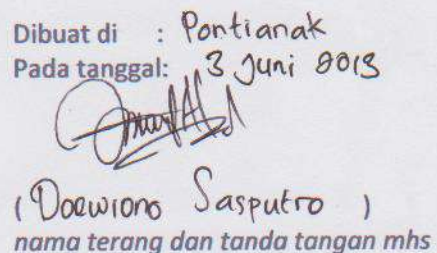 Dibuat di : Pontianak
Pada tanggal: 3 Juni 2013
(Doewiono Sasputro )
nama terang dan tanda tangan mhs